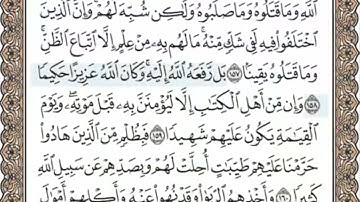 ٱللَّهِ وَمَا قَتَلُوهُ وَمَا صَلَبُوهُ وَلَٰكِن شُبِّهَ لَهُمْ ۚ وَإِنَّ ٱلَّذِينَ
ٱخْتَلَفُوا۟ فِيهِ لَفِى شَكٍّ مِّنْهُ ۚ مَا لَهُم بِهِۦ مِنْ عِلْمٍ إِلَّا ٱتِّبَاعَ ٱلظَّنِّ ۚ
وَمَا قَتَلُوهُ يَقِينًۢا ۝١٥٧ بَل رَّفَعَهُ ٱللَّهُ إِلَيْهِ ۚ وَكَانَ ٱللَّهُ عَزِيزًا حَكِيمًا
۝١٥٨ وَإِن مِّنْ أَهْلِ ٱلْكِتَٰبِ إِلَّا لَيُؤْمِنَنَّ بِهِۦ قَبْلَ مَوْتِهِۦ ۖ وَيَوْمَ
ٱلْقِيَٰمَةِ يَكُونُ عَلَيْهِمْ شَهِيدًا ۝١٥٩ فَبِظُلْمٍ مِّنَ ٱلَّذِينَ هَادُوا۟
حَرَّمْنَا عَلَيْهِمْ طَيِّبَٰتٍ أُحِلَّتْ لَهُمْ وَبِصَدِّهِمْ عَن سَبِيلِ ٱللَّهِ
كَثِيرًا ۝١٦٠ وَأَخْذِهِمُ ٱلرِّبَوٰا۟ وَقَدْ نُهُوا۟ عَنْهُ وَأَكْلِهِمْ أَمْوَٰلَ